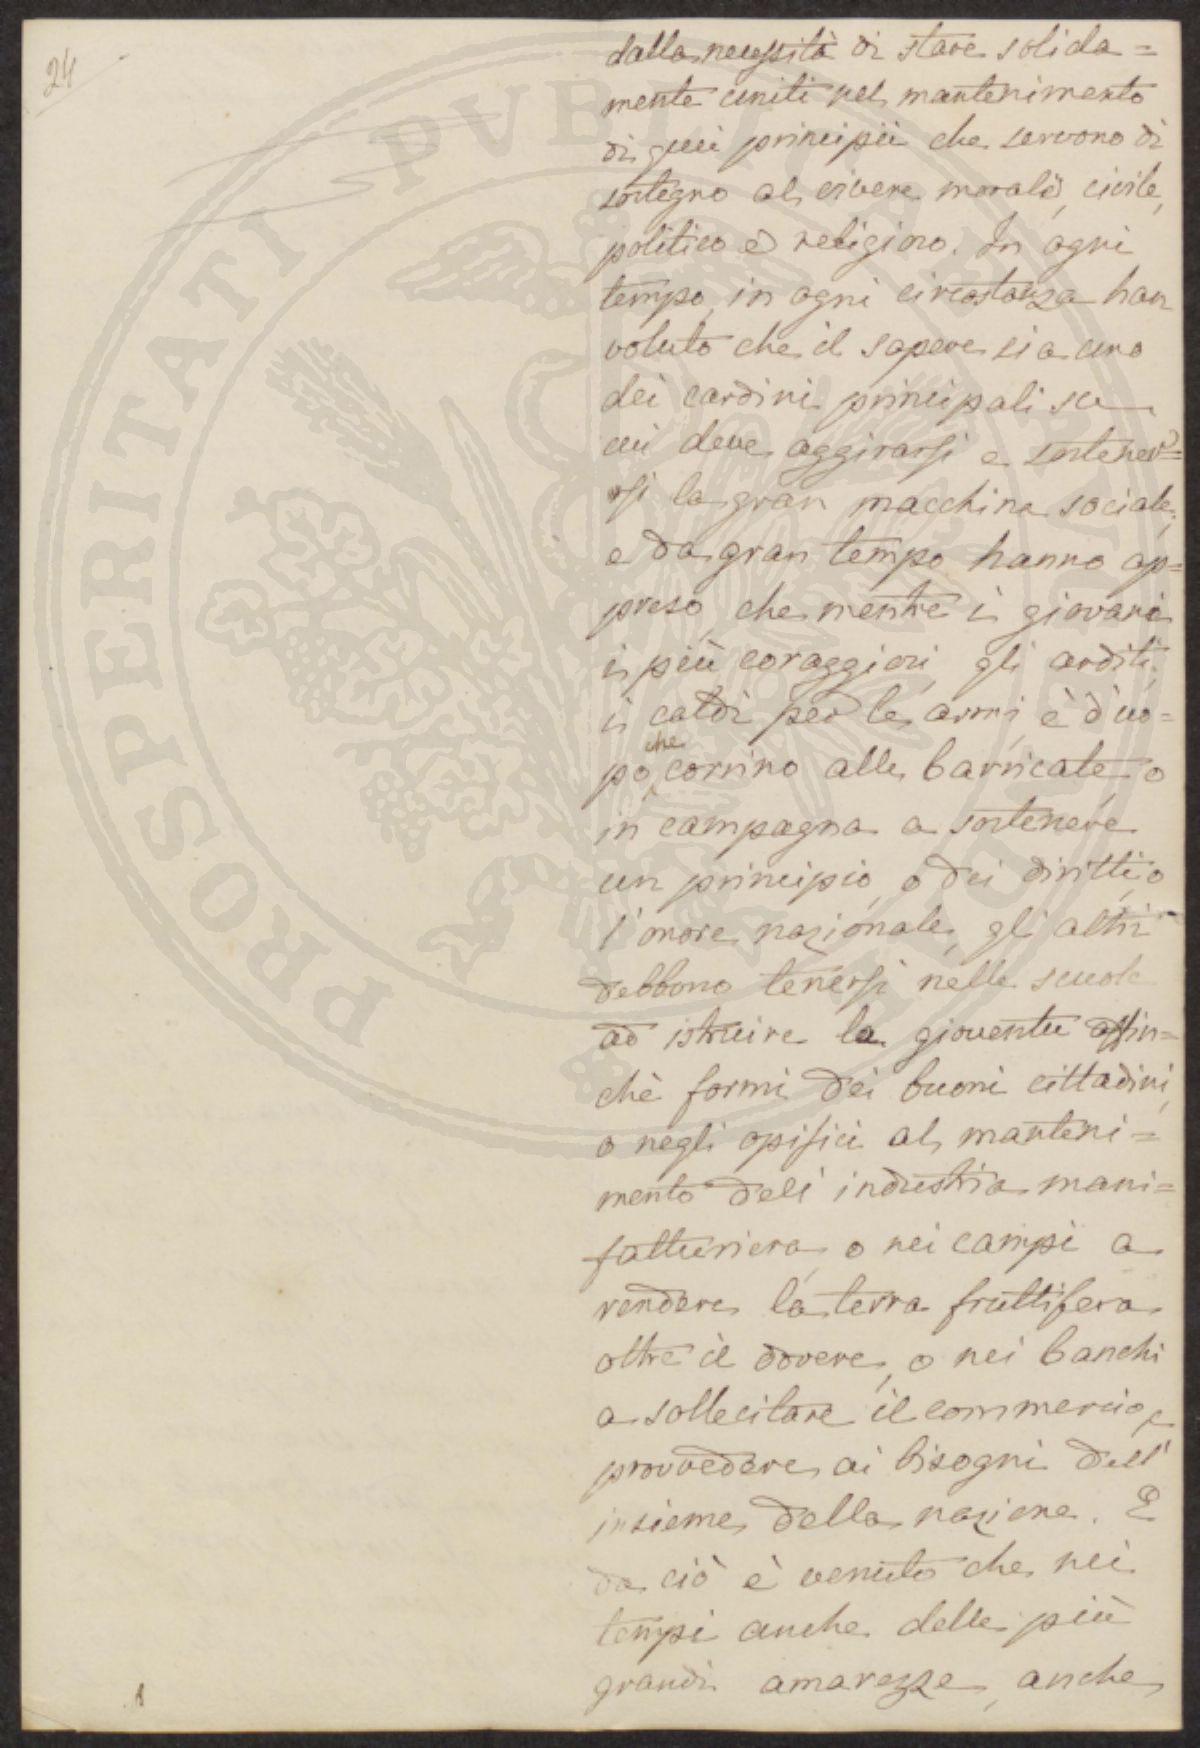 24
dalla necessità di stare solida=
mente uniti nel mantenimento
di quei principii che servono di
sostegno al vivere morale, civile,
politico e religioso. In ogni
tempo, in ogni circostanza han
voluto che il sapere sia uno
dei cardini principali su
cui deve aggirarsi e sostener=
rsi la gran macchina sociale;
e da gran tempo hanno ap=
preso, che mentre i giovani
i più coraggiosi, gli arditi,
i caldi per le armi, è d'uo=
che
po corrino alle barricate, o
in campagna a sostenere
un principio, o dei diritti, o
l'onore nazionale, gli altri
debbono tenersi nelle scuole
ad istruire la gioventù affin=
chè formi dei buoni cittadini,
o negli opifici al manteni=
mento dell'industria mani=
fatturiera, o nei campi a
rendere la terra fruttifera
oltre il dovere, o nei banchi
a sollecitare il commercio e
provvedere ai bisogni dell'
insieme della nazione. E
da ciò è venuto che nei
tempi anche delle più
grandi amarezze, anche
PROSPERITATI